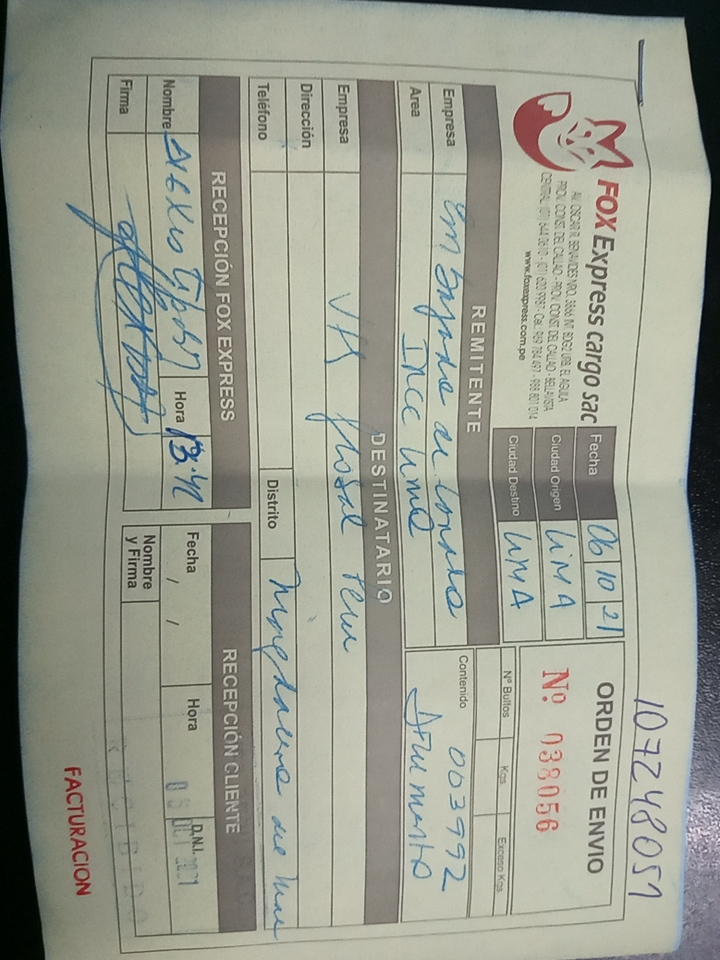 107248051
FOX Express cargo sac
AV. OSCAR R. BENAVIDES NRO. 3866 INT. BDG2 URB. EL AGUILA
PROV. CONST. DEL CALLAO - PROV. CONST. DEL CALLAO - BELLAVISTA
CENTRAL: (01) 644 0610 - (01) 620 9987 - Cel.: 949 784 497 - 998 801 014
www.foxexpress.com.pe
Fecha 06 10 21
Ciudad Origen LIMA
Ciudad Destino LIMA
ORDEN DE ENVIO
Nº 038056
Nº Bultos Kgs Exceso Kgs
REMITENTE
Empresa Embajada de
Area Lima
Contenido 003992
Documento
DESTINATARIO
Empresa VFS Global Peru
Dirección
Teléfono
Distrito Magdalena del Mar
RECEPCIÓN FOX EXPRESS
Nombre Alexis Hora 13:41
Firma
RECEPCIÓN CLIENTE
Fecha / / Hora D.N.I.
06 OCT 2021
Nombre
y Firma
RECIBIDO
FACTURACION